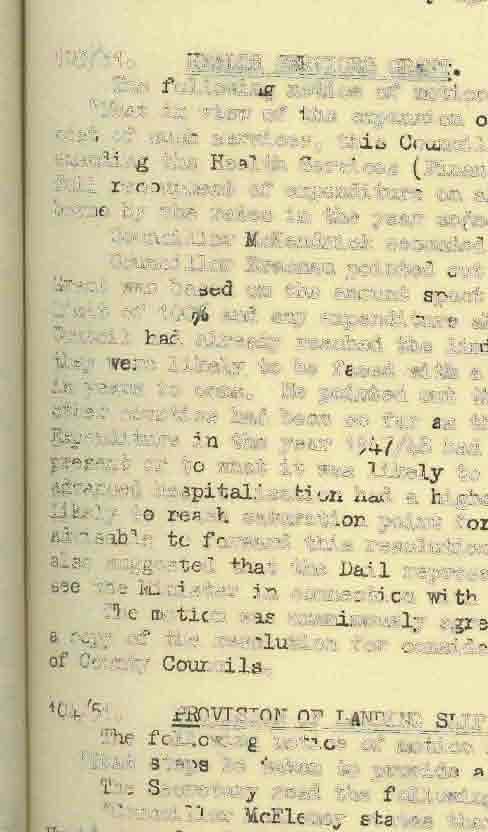 103/51. HEALTH SERVICES GRANT.
The following notice of motion
"That in view of the expansion o
cost of such services, this Council
amending the Health Services (Finan
full recoupment of expenditure on a
borne by the rates in the year
Councillor McKendrick seconded
Councillor pointed out
Grant was based on the amount spent
that of 100% and any expenditure
Council had already reached the limi
they were likely to be faced with a
in years to come. He pointed out
other counties had been so far as th
Expenditure in the year 1947/48 had
present or to what it was likely to
advanced hospitalization had a highe
likely to reach saturation point for
advisable to forward this resolution
also suggested that the Dail repres
see the Minister in connection with
The motion was unanimously agre
a copy of the resolution for conside
of County Councils.
104/51. PROVISION OF LANDING SLIP
The following notice of motion
"That steps be taken to provide a
The Secretary read the following
"Councillor McFleny states that